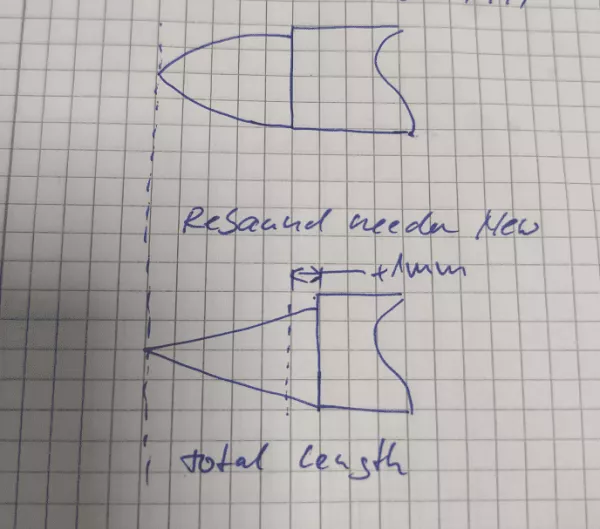 ReSound needle New
+1mm
total length